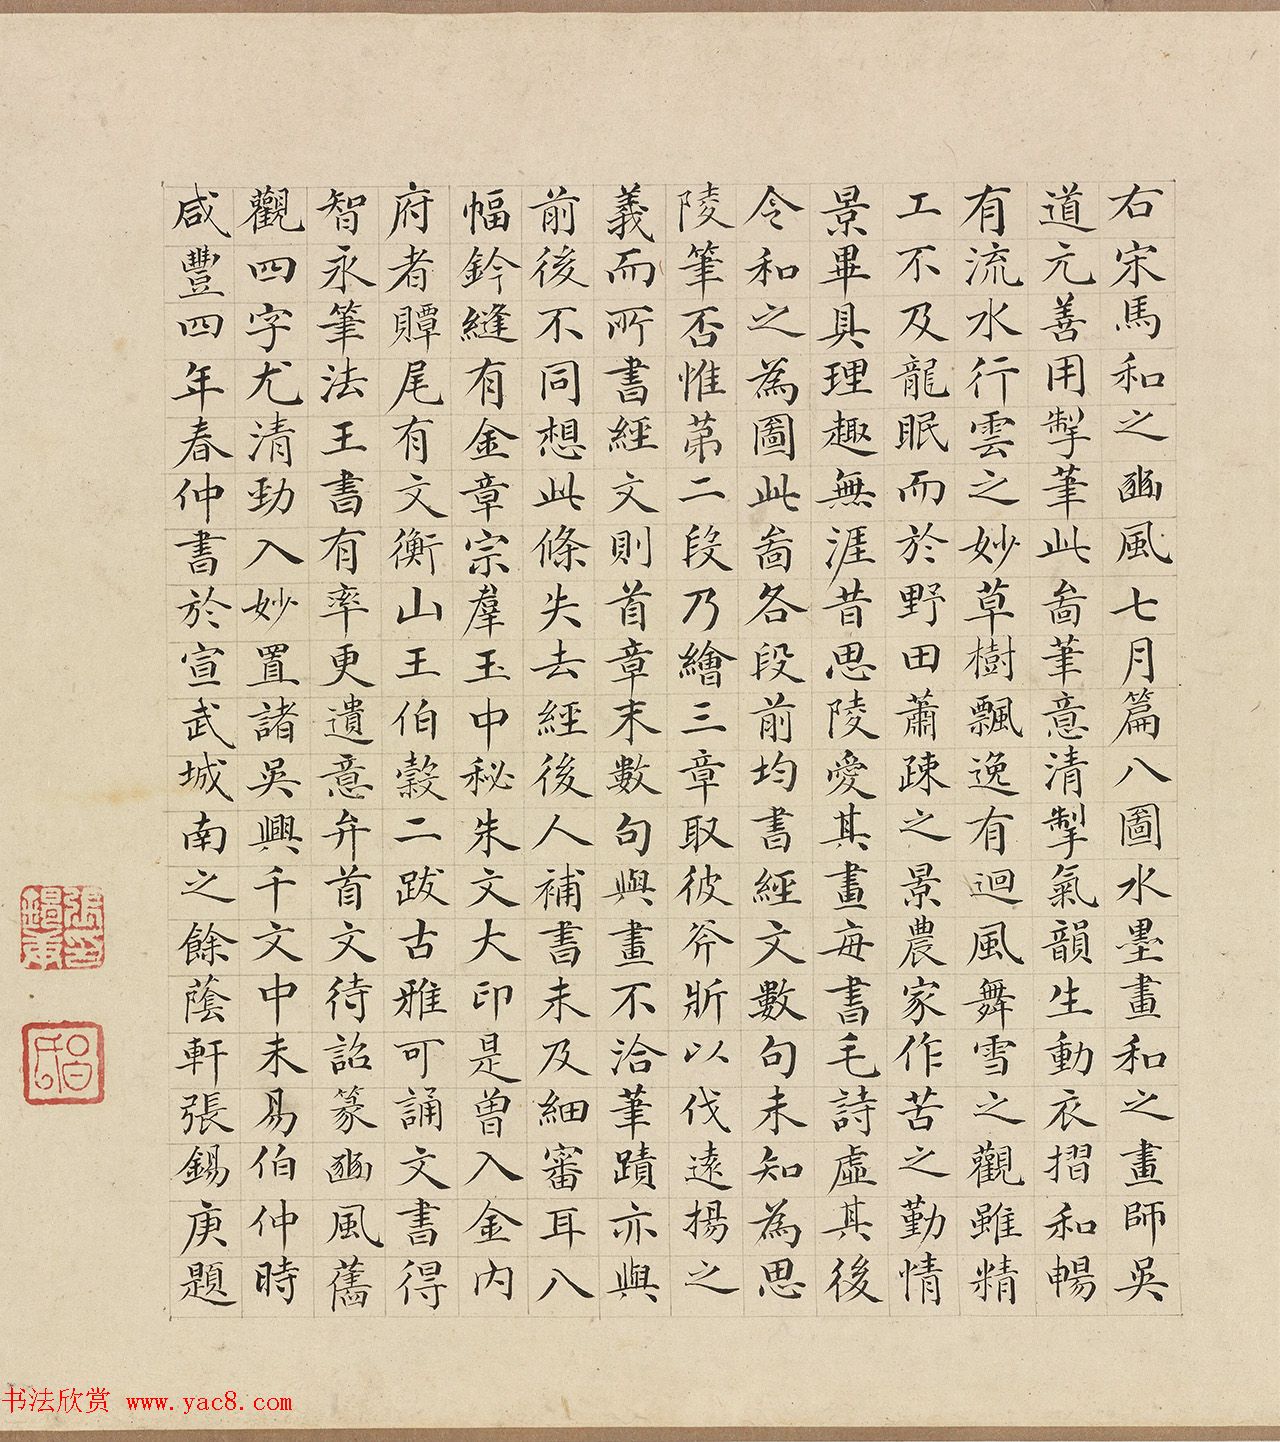 右宋馬和之豳風七月篇八圖水墨畫和之畫師吳
道元善用掣筆此啚筆意清掣氣韻生動衣摺和暢
有流水行雲之妙草樹飄逸有迴風舞雪之觀雖精
工不及龍眠而於野田蕭疎之景農家作苦之勤情
景畢具理趣無涯昔思陵愛其畫每書毛詩虛其後
令和之為圖此啚各段前均書經文數句未知為思
陵筆否惟第二段乃繪三章取彼斧斨以伐遠揚之
義而所書經文則首章末數句與畫不洽筆蹟亦與
前後不同想此條失去經後人補書未及細審耳八
幅鈐縫有金章宗羣玉中秘朱文大印是曾入金內
府者贉尾有文衡山王伯穀二跋古雅可誦文書得
智永筆法王書有率更遺意弁首文待詔篆豳風舊
觀四字尤清勁入妙置諸吳興千文中未易伯仲時
咸豐四年春仲書於宣武城南之餘蔭軒張錫庚題
張印錫庚
书法欣赏 www.yac8.com